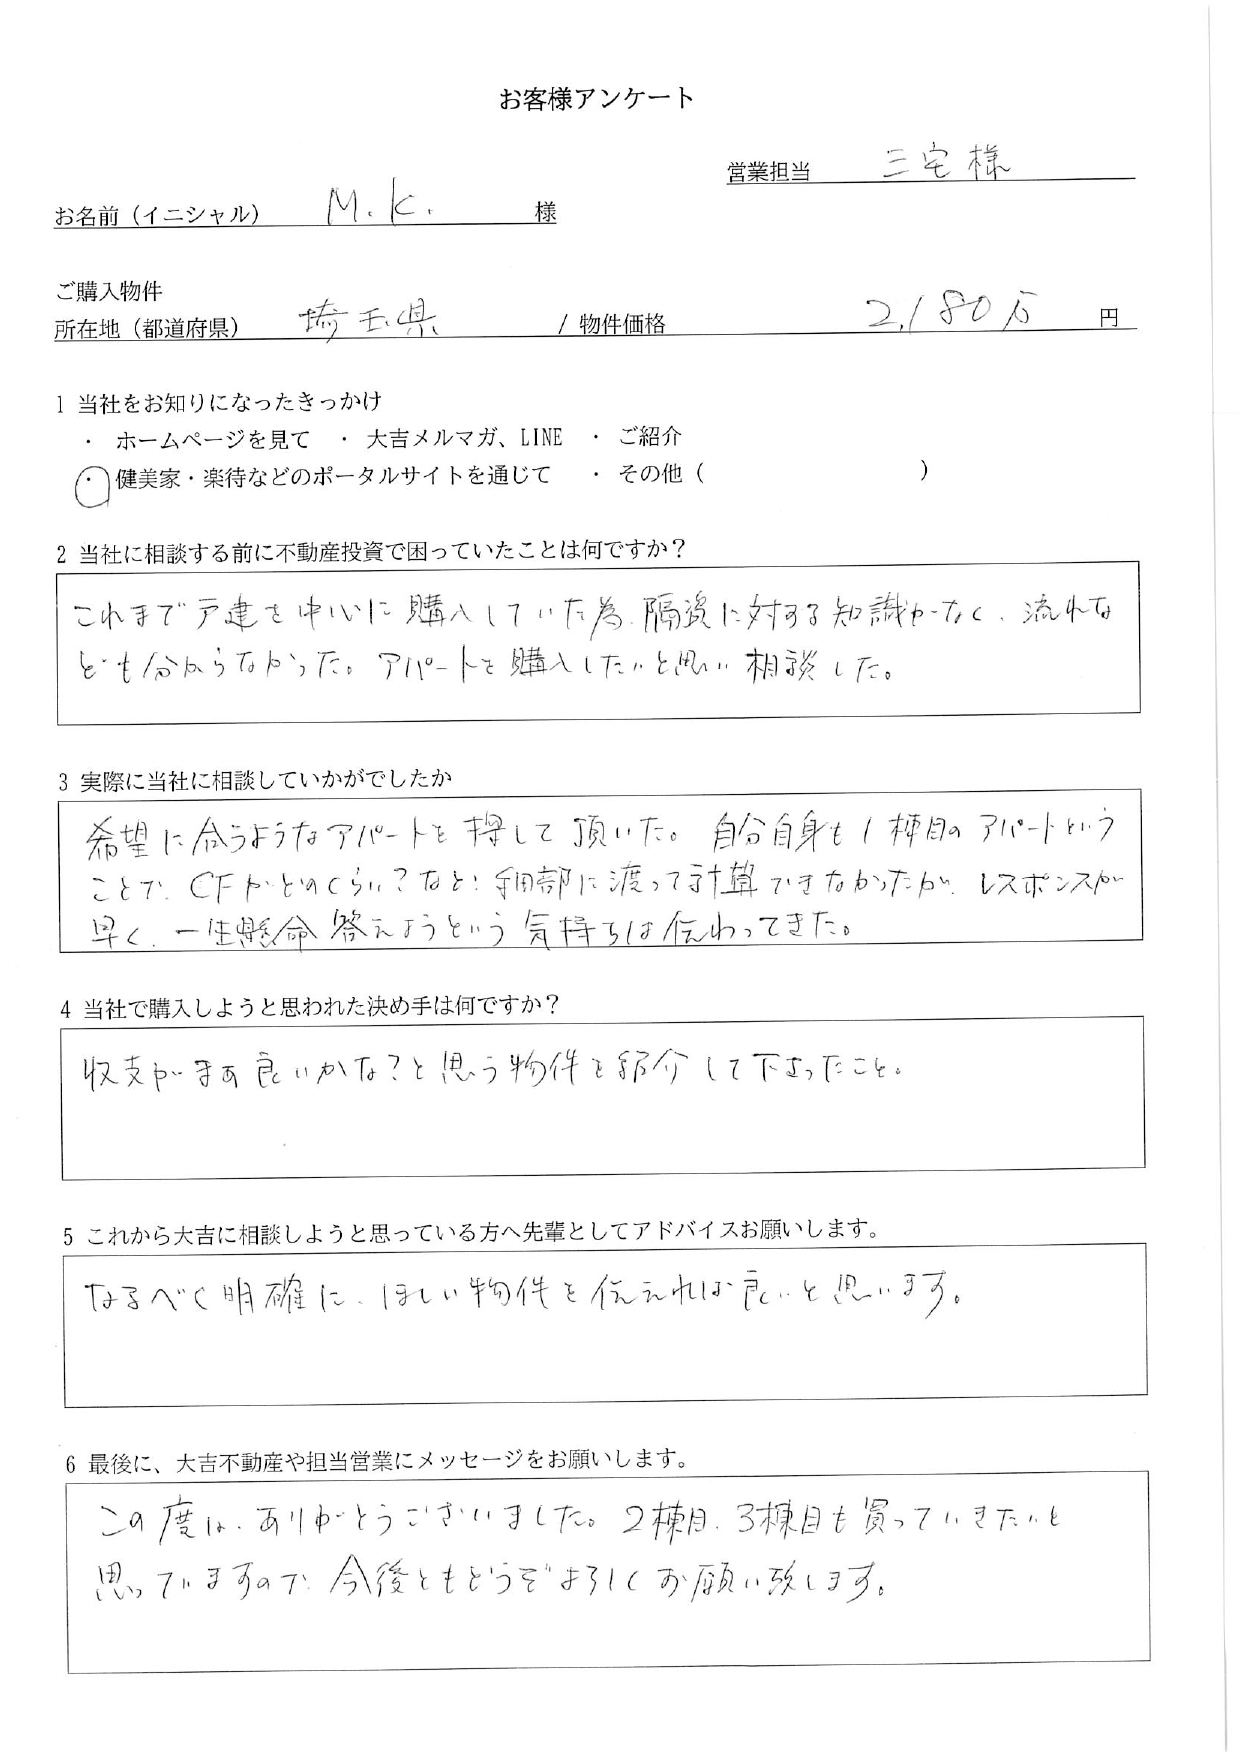 お客様アンケート
営業担当 三宅様
お名前（イニシャル） M.K. 様
ご購入物件
所在地（都道府県） 埼玉県 / 物件価格 2,180万 円
1 当社をお知りになったきっかけ
・ ホームページを見て ・ 大吉メルマガ、LINE ・ ご紹介
・ 健美家・楽待などのポータルサイトを通じて ・ その他（ ）
2 当社に相談する前に不動産投資で困っていたことは何ですか？
これまで戸建を中心に購入していた為、融資に対する知識がなく、流れな
ども分からなかった。アパートを購入したいと思い相談した。
3 実際に当社に相談していかがでしたか
希望に合うようなアパートを探して頂いた。自分自身も1棟目のアパートという
ことで、CFがどのくらい？など、細部に渡って計算できなかったが、レスポンスが
早く、一生懸命答えようという気持ちは伝わってきた。
4 当社で購入しようと思われた決め手は何ですか？
収支がまあ良いかな？と思う物件を紹介して下さったこと。
5 これから大吉に相談しようと思っている方へ先輩としてアドバイスお願いします。
なるべく明確に、ほしい物件を伝えれば良いと思います。
6 最後に、大吉不動産や担当営業にメッセージをお願いします。
この度は、ありがとうございました。2棟目、3棟目も買っていきたいと
思っていますので、今後ともどうぞよろしくお願い致します。